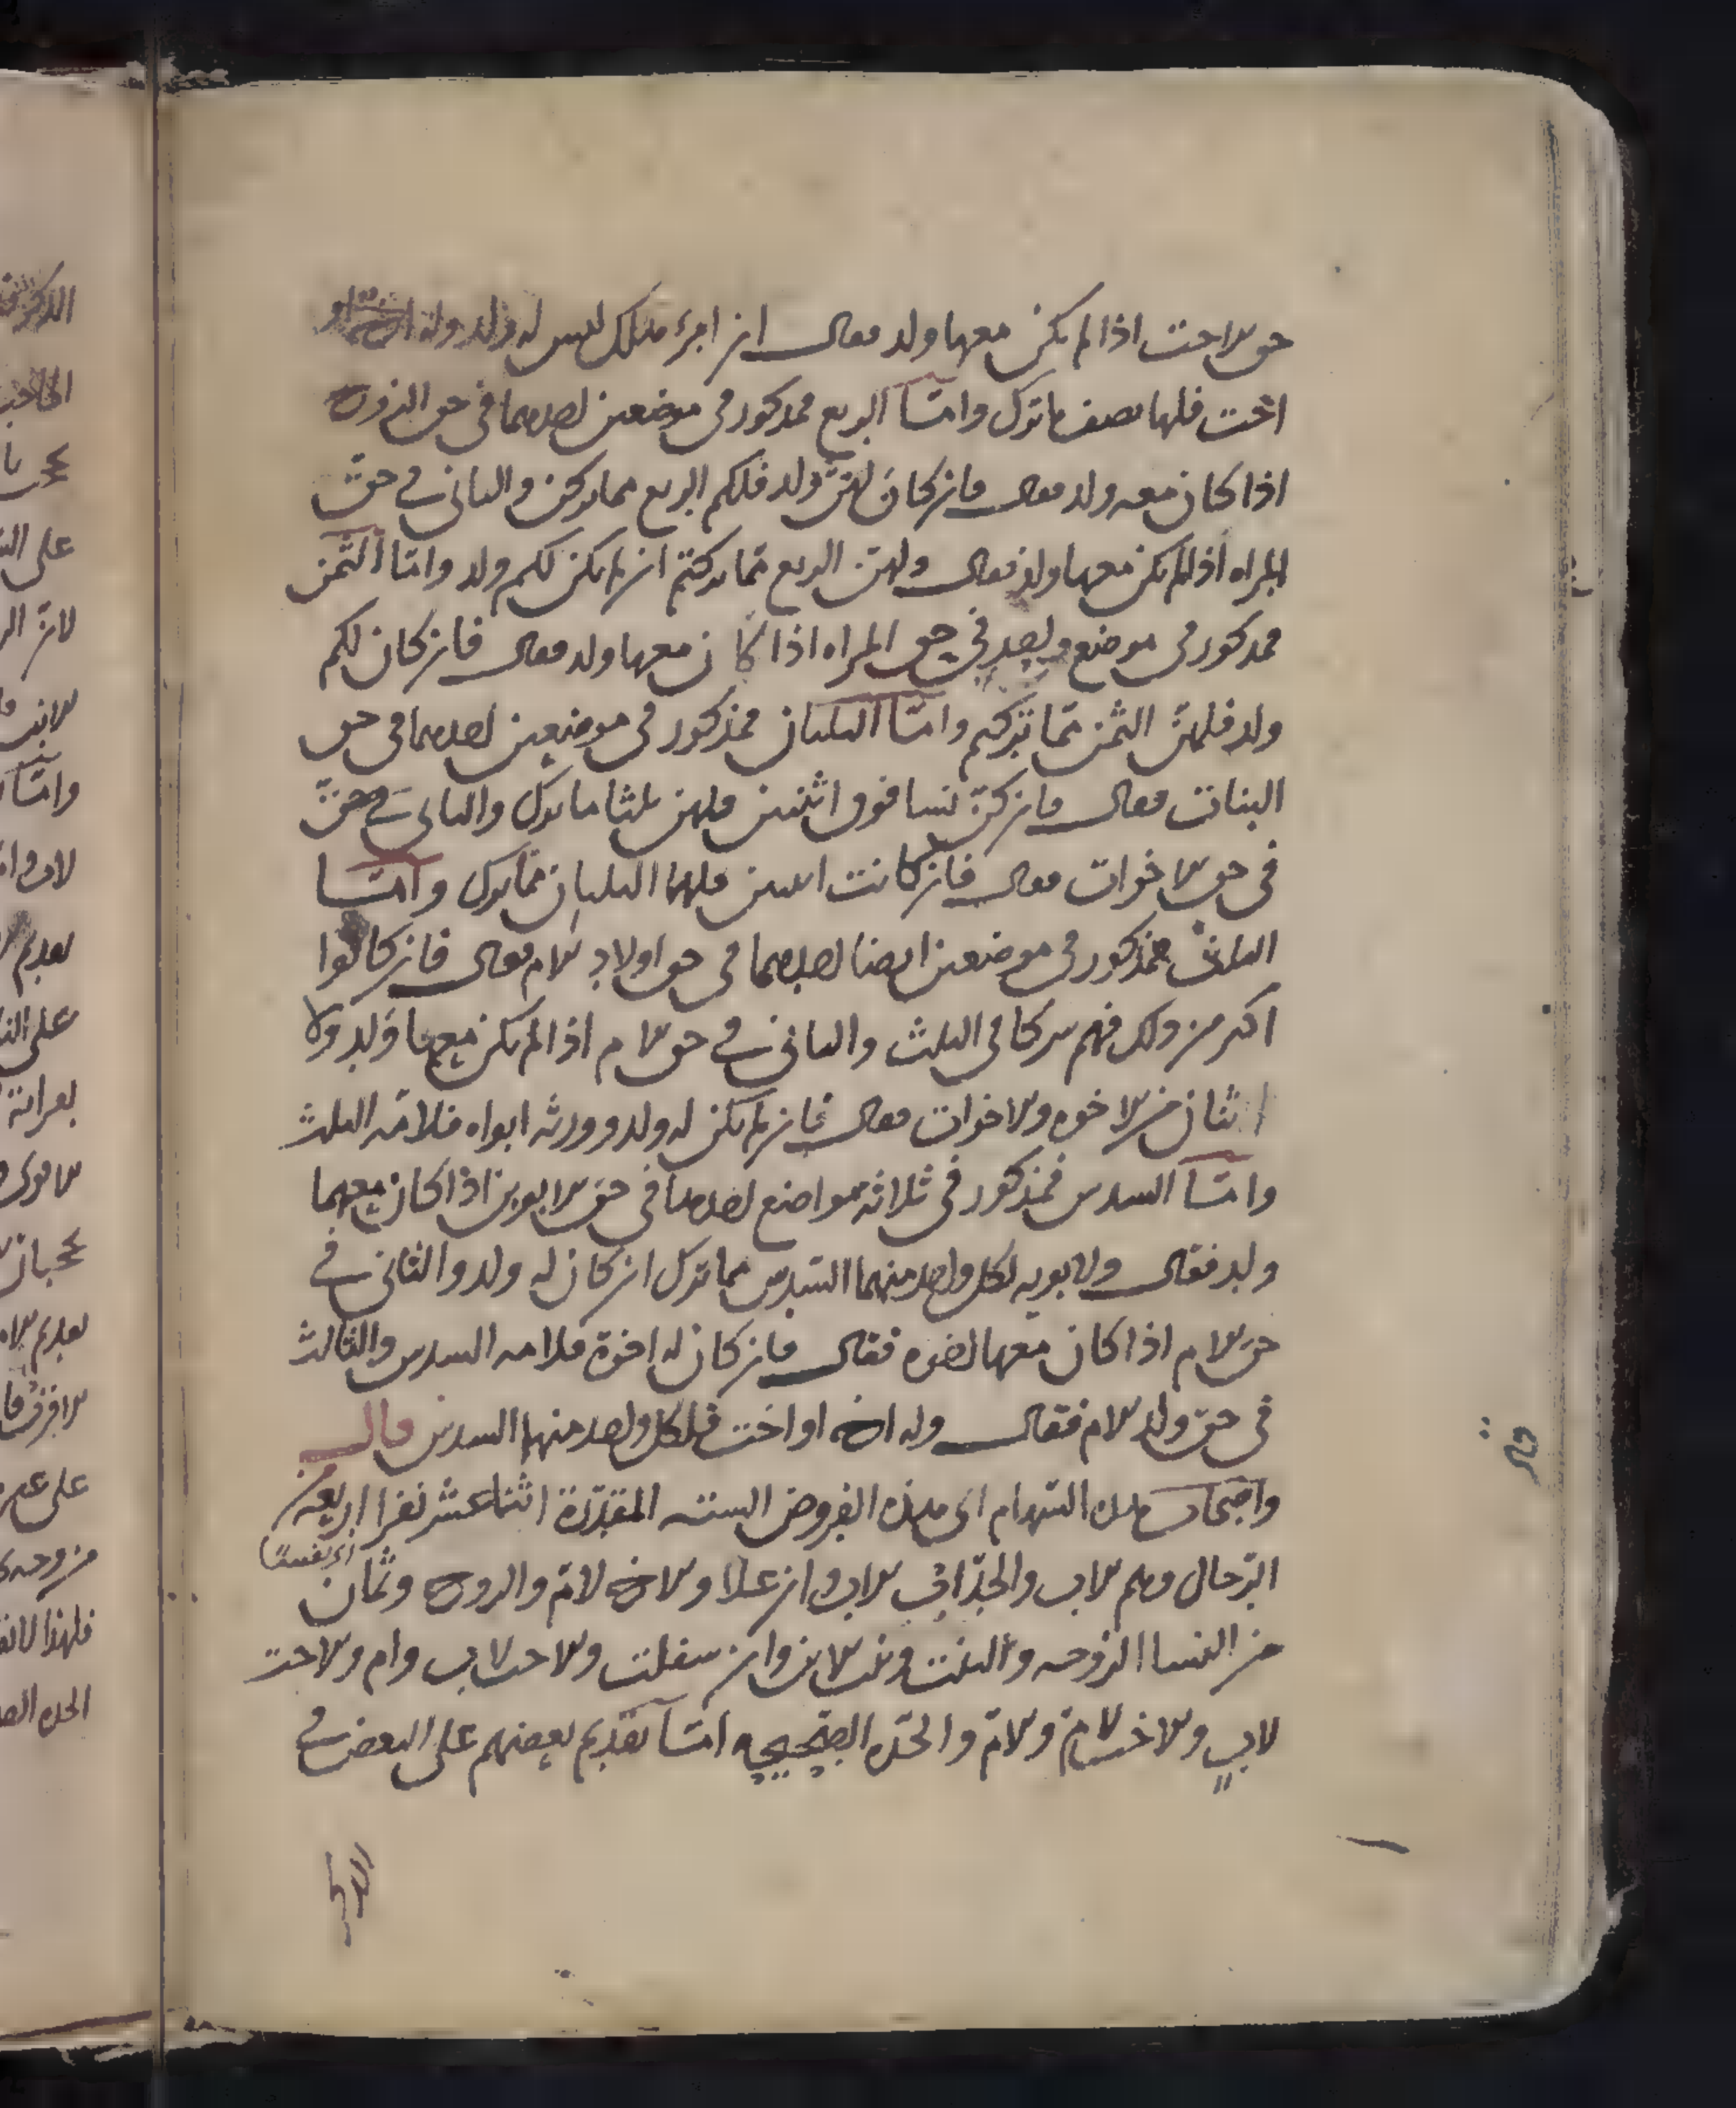 حق الاخت اذا لم يكن معها ولد فقال ان امرؤ هلك ليس له ولد وله
اخت فلها نصف ما ترك واما الربع فمذكور في موضعين احدهما في حق الزوج
اذا كان معه ولد فقال فان كان لهن ولد فلكم الربع مما تركن والثاني في حق
المراه اذا لم يكن معها ولد فقال ولهن الربع مما تركتم ان لم يكن لكم ولد واما الثمن
فمذكور في موضع واحد في حق المراه اذا كان معها ولد فقال فان كان لكم
ولد فلهن الثمن مما تركتم واما الثلثان فمذكور في موضعين احدهما في حق
البنات فقال فان كن نسا فوق اثنتين فلهن ثلثا ما ترك والثاني في حق
في حق الاخوات فقال فان كانت اثنتين فلهما الثلثان مما ترك واما
الثلث فمذكور في موضعين ايضا احدهما في حق اولاد الام فقال فان كانوا
اكثر من ذلك فهم شركا في الثلث والثاني في حق الام اذا لم يكن معها ولد ولا
اثنان من الاخوه والاخوات فقال فان لم يكن له ولد وورثه ابواه فلامه الثلث
واما السدس فمذكور في ثلاثة مواضع احدها في حق الابوين اذا كان معهما
ولد فقال ولابويه لكل واحد منهما السدس مما ترك ان كان له ولد والثاني في
حق الام اذا كان معها اخوه فقال فان كان له اخوة فلامه السدس والثالث
في حق ولد الام فقال وله اخ او اخت فلكل واحد منهما السدس قال
واصحاب هذه السهام اى هذه الفروض الستة المقدرة اثنا عشر نفرا اربعة من
الرجال وهم الاب والجد اب الاب وان علا والاخ لام والزوج وثمان
من النسا الزوجه والبنت وبنت الابن وان سفلت والاخت لاب وام والاخت
لاب والاخت لام والام والجده الصحيحه اما تقديم بعضهم على البعض في